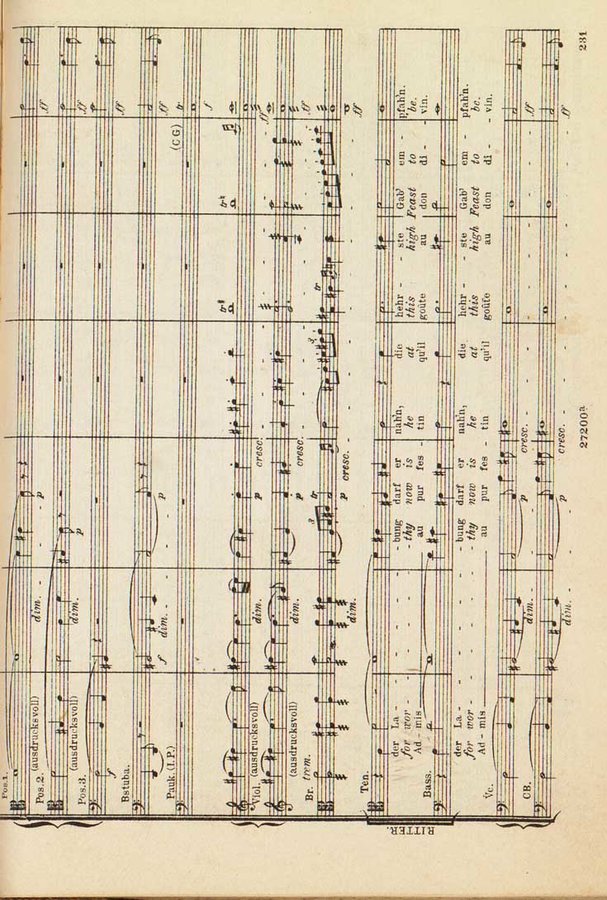 Pos.1.
dim. p ff
Pos.2. (ausdrucksvoll)
dim. p ff
(ausdrucksvoll)
Pos.3.
f ff
Bstuba.
f dim. p ff
Pauk. (I.P.) (C G) tr
f
Viol. (ausdrucksvoll)
dim. p cresc. ff
(ausdrucksvoll)
dim. p cresc. ff
Br. trem.
dim. p cresc. ff
RITTER.
Ten.
der La - - - - - - bung darf er nah'n, die hehr - ste Gab' em - pfah'n.
for wor - - - - - - thy now is he at this high Feast to be.
Ad - mis - - - - - au pur fes - tin qu'il goûte au don di - vin.
Bass.
der La - - - - - - bung darf er nah'n, die hehr - ste Gab' em - pfah'n.
for wor - - - - - - thy now is he at this high Feast to be.
Ad - mis - - - - - au pur fes - tin qu'il goûte au don di - vin.
Vc.
dim. p cresc. ff
CB.
dim. p cresc. ff
27200a 231